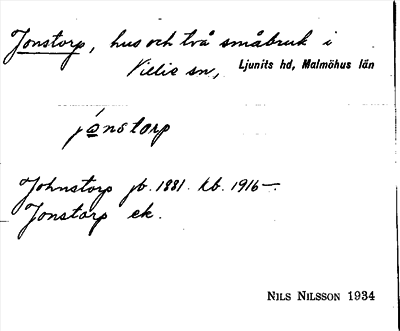 Jonstorp, hus och två småbruk i
Villie sn, Ljunits hd, Malmöhus län
jonstorp
Johnstorp jb. 1881. kb. 1916—.
Jonstorp ek.
NILS NILSSON 1934